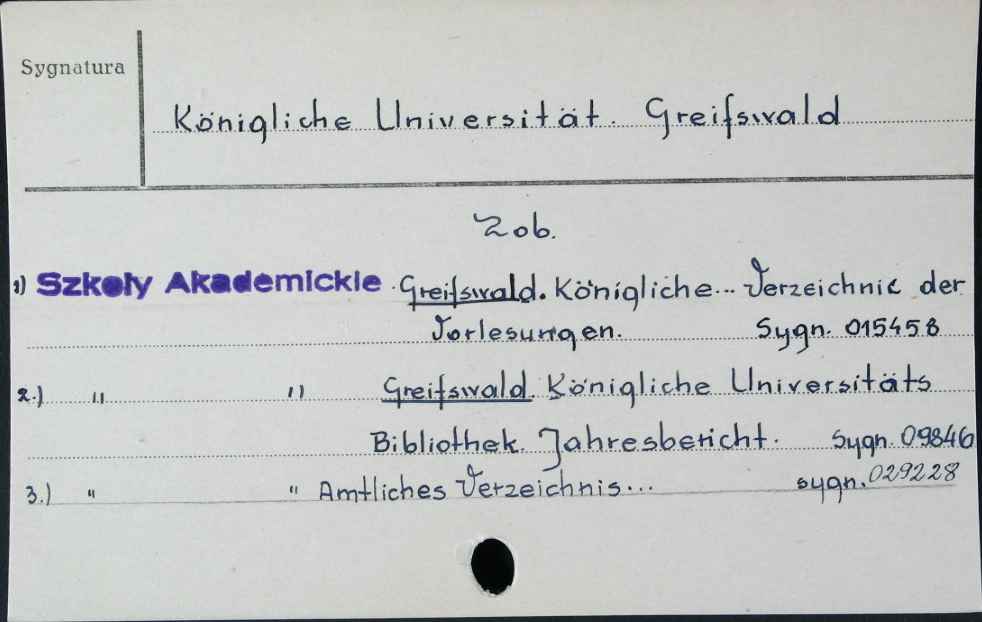 Sygnatura
Königliche Universität. Greifswald
Zob.
1) Szkoły Akademickie Greifswald. Königliche... Verzeichnis der
Vorlesungen. Sygn. 015458
2.) " " Greifswald. Königliche Universitäts
Bibliothek. Jahresbericht. Sygn. 09846
3.) " " Amtliches Verzeichnis... sygn. 029228